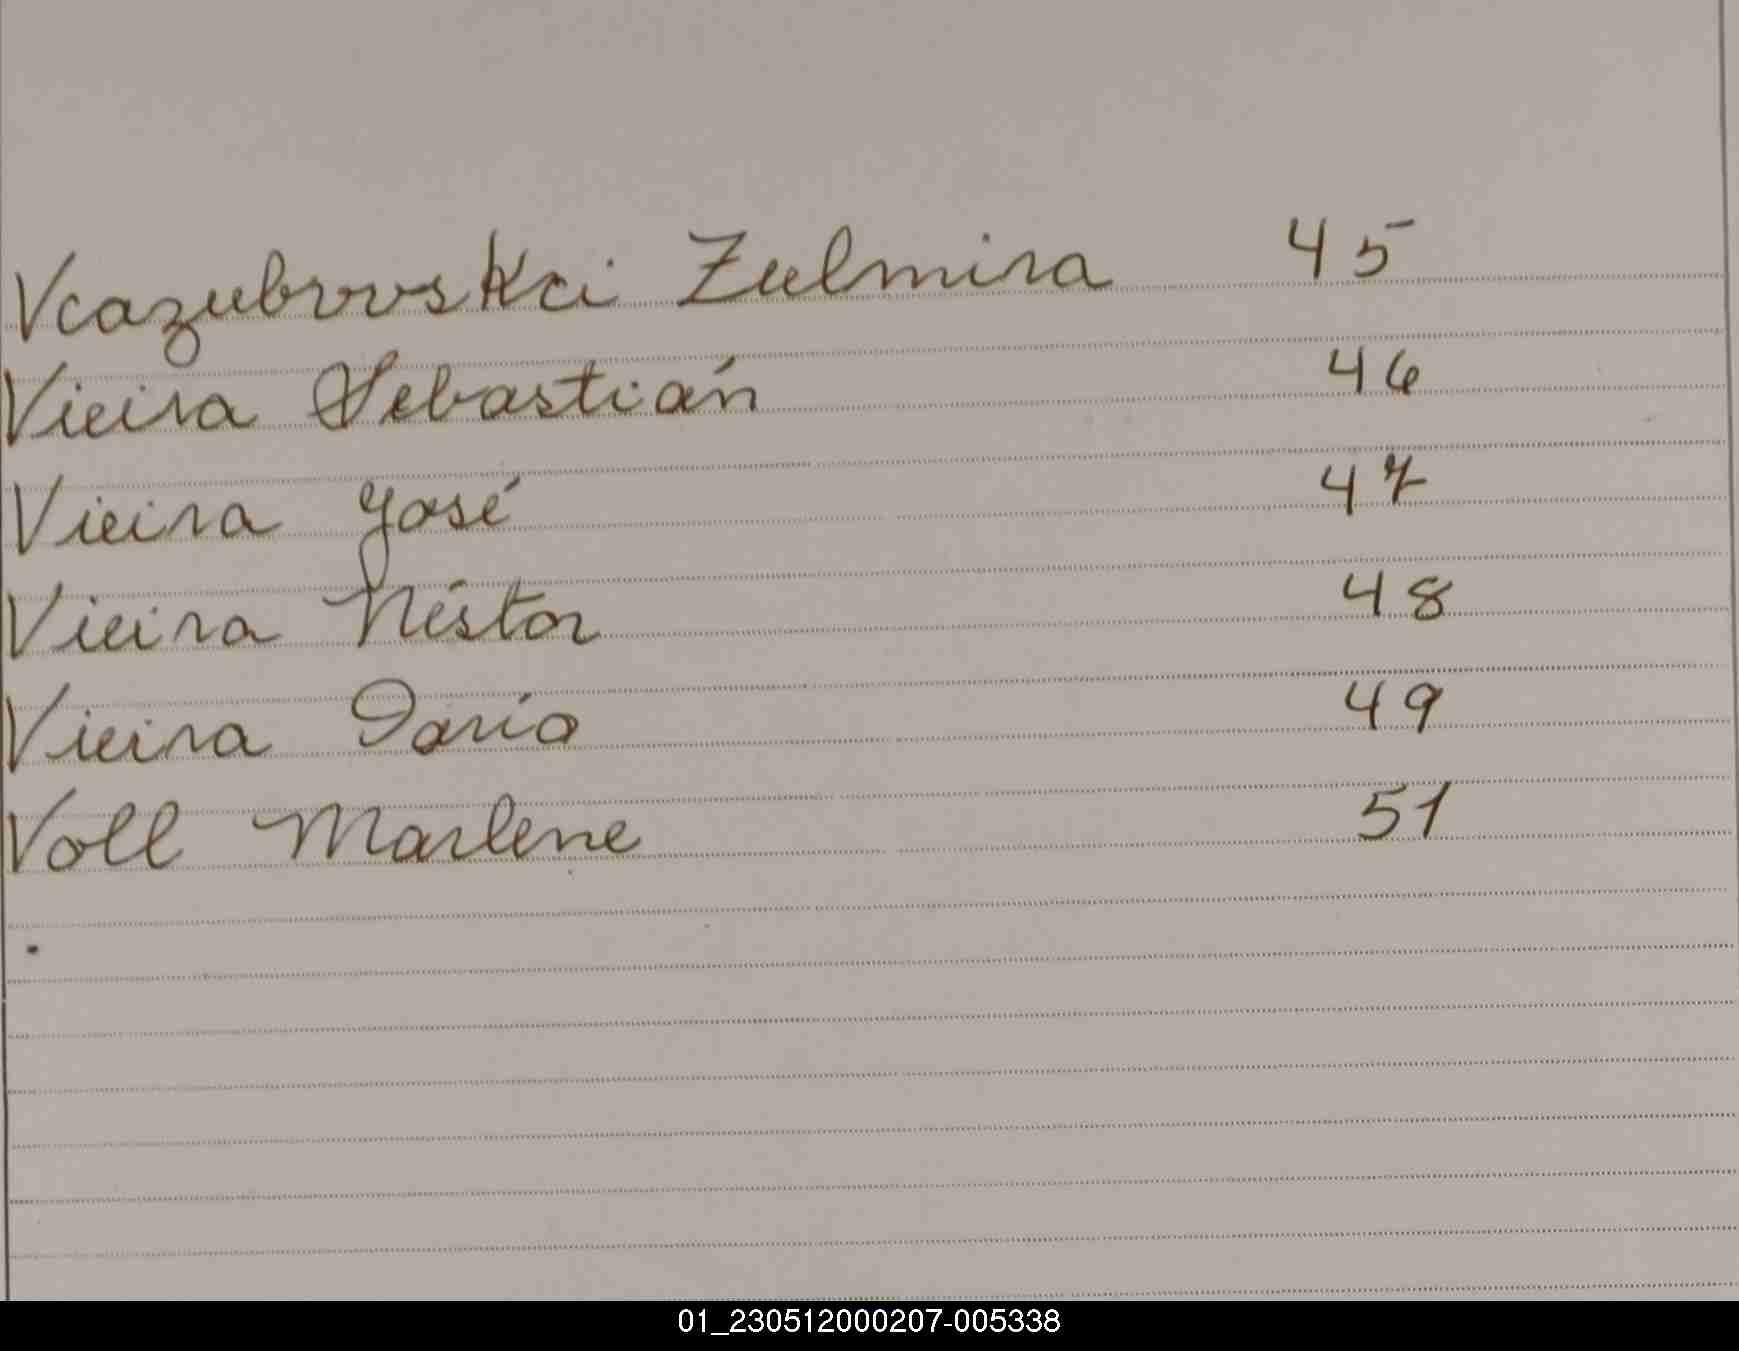 Vcazubrvskci Zulmira 45
Vieira Sebastián 46
Vieira José 47
Vieira Néstor 48
Vieira Darío 49
Voll Marlene 51
01_230512000207-005338